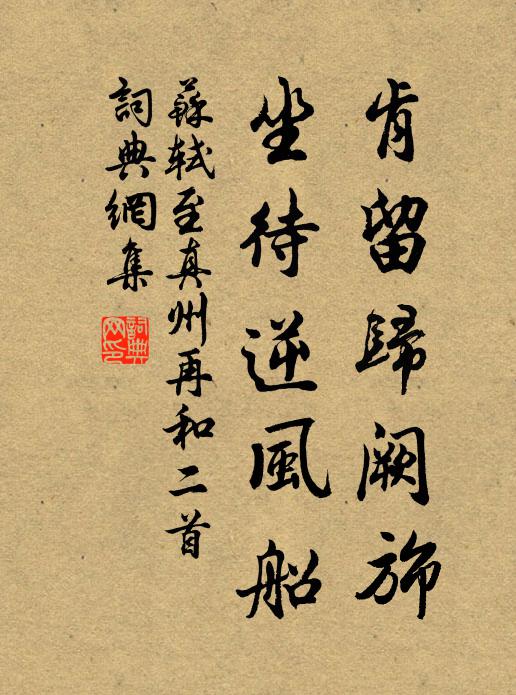 肯留歸阙斾
坐待逆風船
蘇軾至真州再和二首
詞典網集
詞典網印